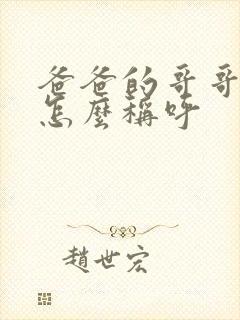 爸爸的哥哥
怎麼稱呼
趙世宏